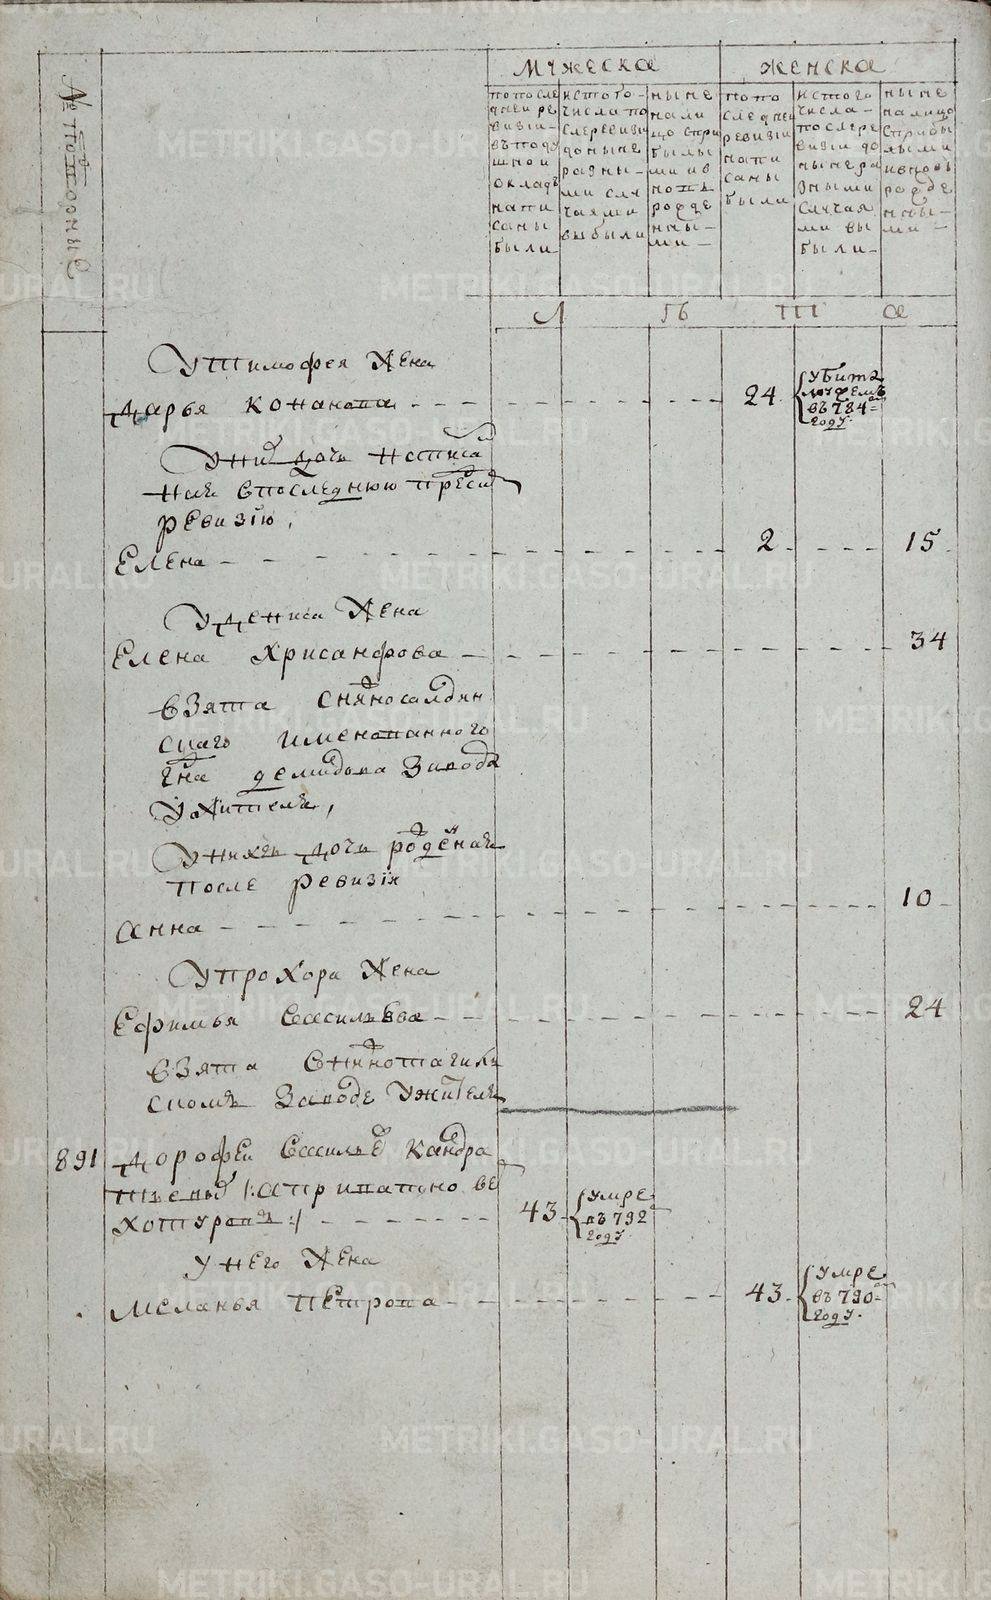 Мужеска
Женска
№ подворные
по после
дней ре
визіи
в поду
шной
окладъ
напи
саны
были
ис того
числа по
сле ревизи
до ныне
разны
ми слу
чаями
выбыли
ныне
нали
цо с при
былы
ми и в
новь
рожде
нны
ми
по по
следней
ревизіи
напи
саны
были
ис того
числа
после ре
визіи до
ныне ра
зными
случая
ми вы
были
ныне
на лицо
с прибы
лыми
и вновь
рожде
нны
ми
Л
ѣ
т
а
У Тимофея жена
Дарья Конанова
24
убита
мужемъ
въ 784м
году
У них дочь написа
ная в последнюю пред сим
ревизію,
Елена
2
15
У Дениса жена
Елена Хрисанфова
34
взята с нижносалдин
скаго именованного
гна демидова завода
у жителя,
У нихъ дочь рожденая
после ревизіи
Анна
10
У Прохора жена
Ефимья Васильева
24
взята в нижнотагиль
скомъ заводе у жителя
891
Дорофей Васильев Кандра
тьевых /: а приватно ве
хотуров :/
43
умре
въ 792м
году
у него жена
Меланья Петрова
43
умре
въ 790м
году
METRIKI.GASO-URAL.RU